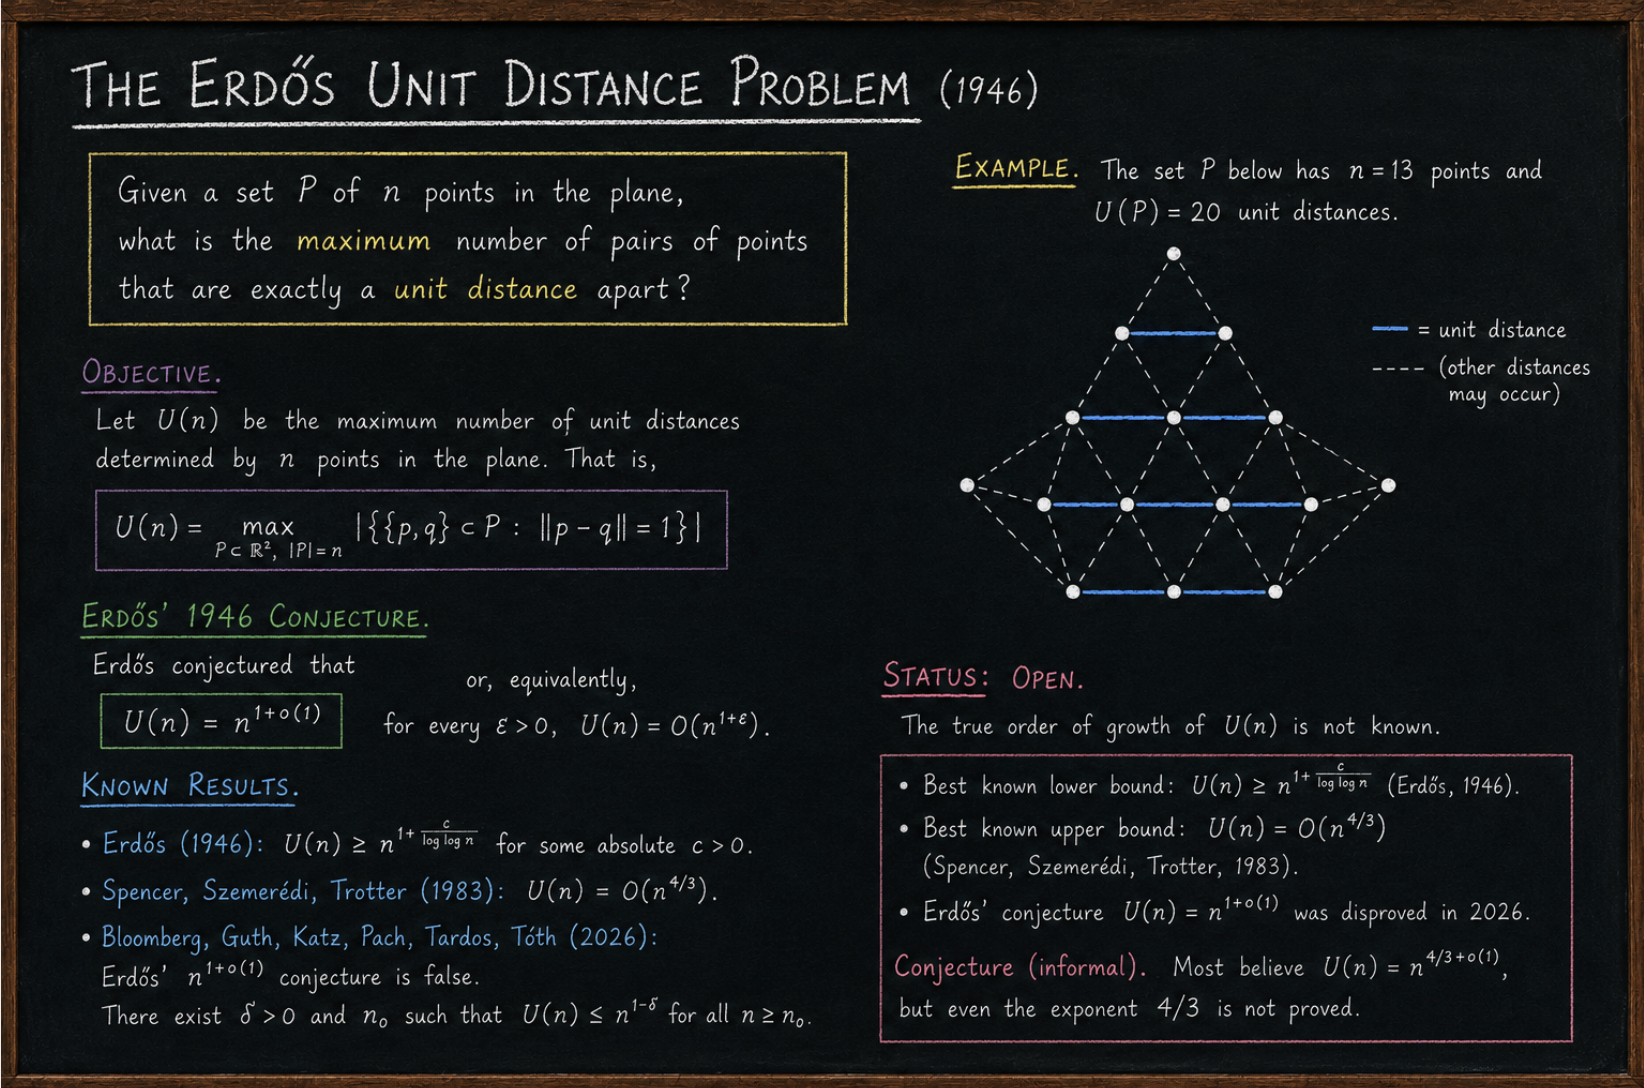 THE ERDŐS UNIT DISTANCE PROBLEM (1946)
Given a set P of n points in the plane,
what is the maximum number of pairs of points
that are exactly a unit distance apart?
OBJECTIVE.
Let U(n) be the maximum number of unit distances
determined by n points in the plane. That is,
U(n) = max_{P⊂ℝ², |P|=n} |{{p,q} ⊂ P : ‖p − q‖ = 1}|
ERDŐS' 1946 CONJECTURE.
Erdős conjectured that
U(n) = n^{1+o(1)}
or, equivalently,
for every ε > 0, U(n) = O(n^{1+ε}).
KNOWN RESULTS.
• Erdős (1946): U(n) ≥ n^{1+ c/(log log n)} for some absolute c > 0.
• Spencer, Szemerédi, Trotter (1983): U(n) = O(n^{4/3}).
• Bloomberg, Guth, Katz, Pach, Tardos, Tóth (2026):
Erdős' n^{1+o(1)} conjecture is false.
There exist δ > 0 and n₀ such that U(n) ≤ n^{1−δ} for all n ≥ n₀.
EXAMPLE. The set P below has n = 13 points and
U(P) = 20 unit distances.
= unit distance
(other distances
may occur)
STATUS: OPEN.
The true order of growth of U(n) is not known.
• Best known lower bound: U(n) ≥ n^{1+ c/(log log n)} (Erdős, 1946).
• Best known upper bound: U(n) = O(n^{4/3})
(Spencer, Szemerédi, Trotter, 1983).
• Erdős' conjecture U(n) = n^{1+o(1)} was disproved in 2026.
Conjecture (informal). Most believe U(n) = n^{4/3+o(1)},
but even the exponent 4/3 is not proved.